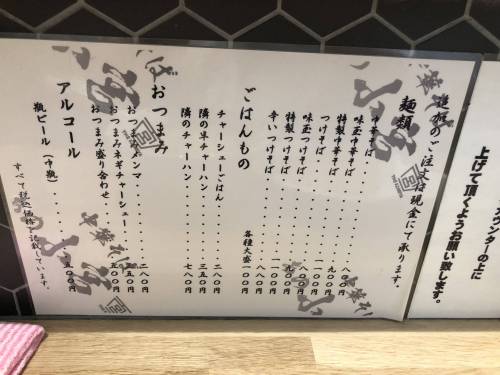 追加のご注文は現金にて承ります。
麺類
中華そば
味玉中華そば
特製中華そば
つけそば
味玉つけそば
特製つけそば
辛いつけそば
各種大盛 一〇〇円
ごはんもの
チャーシューごはん 二八〇円
隣の半チャーハン 三五〇円
隣のチャーハン 七八〇円
おつまみ
おつまみメンマ 二八〇円
おつまみネギチャーシュー 三五〇円
おつまみ盛り合わせ 五〇〇円
アルコール
瓶ビール(中瓶)
すべて税込価格で記載しています。
カウンターの上に
上げて頂くようお願い致します。